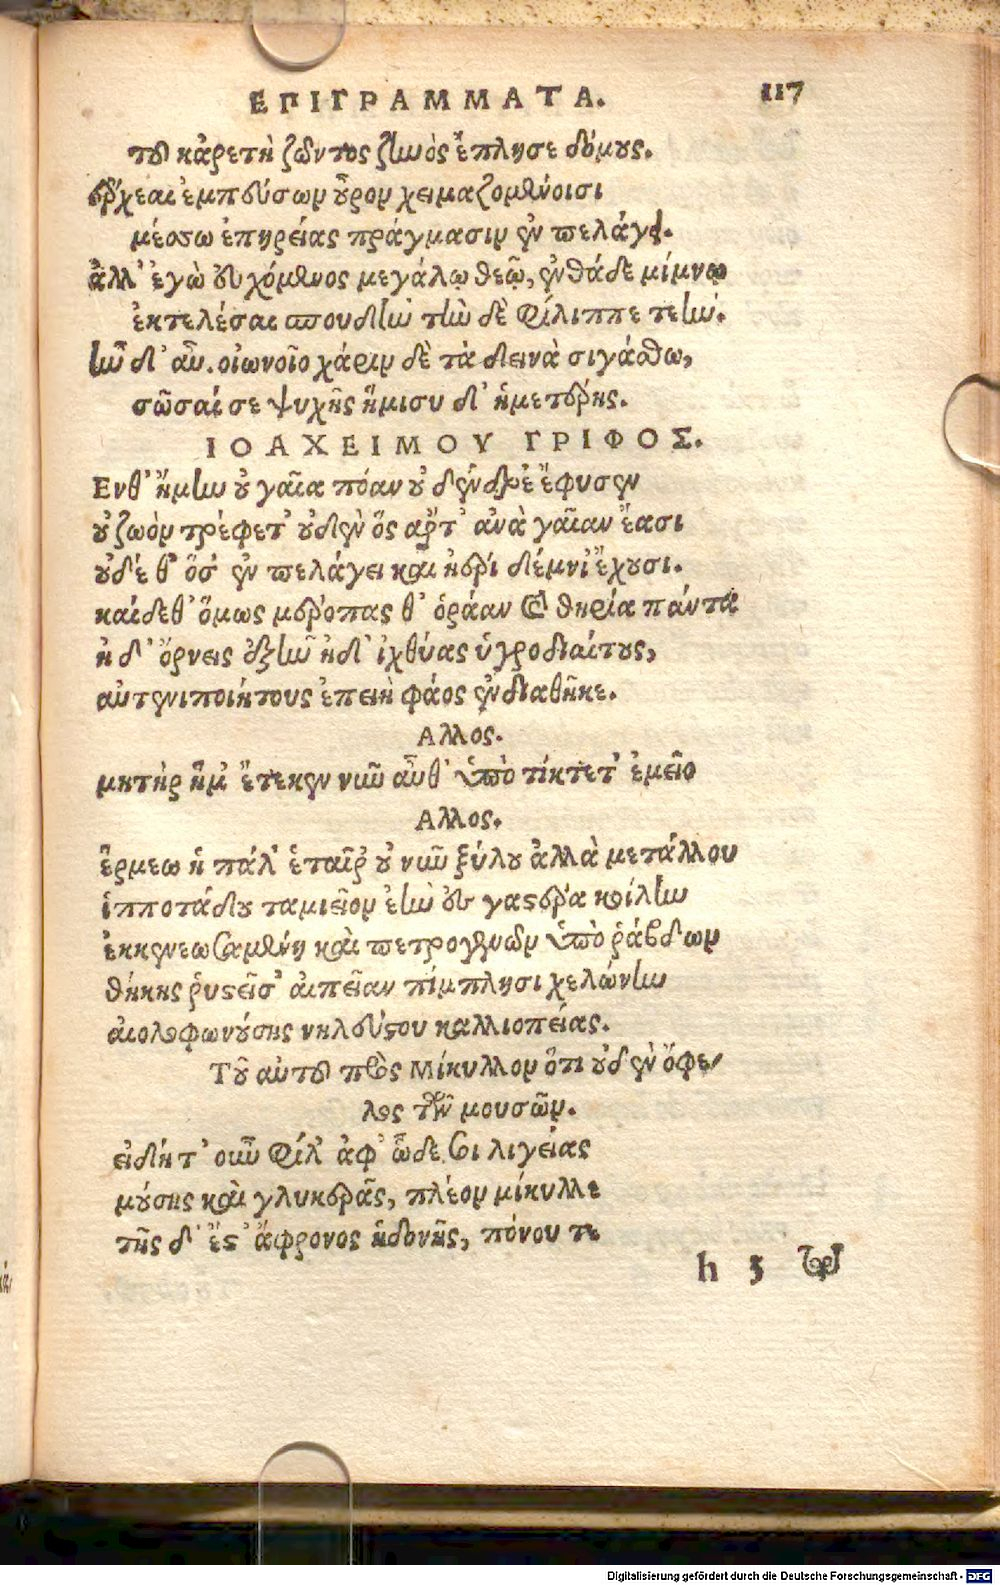 ΕΠΙΓΡΑΜΜΑΤΑ. 117
τοῦ κἀρετὴ ζῶντος ζηνὸς ἔπλησε δόμους.
ἔρχεαι ἐμπνεύσων οὖρον χειμαζομένοισι
μέσσῳ ἐπηρείας πράγμασιν ἐν πελάγει.
ἀλλ' ἐγὼ εὐχόμενος μεγάλῳ θεῷ, ἐνθάδε μίμνω
ἐκτελέσαι σπουδὴν τὴν δὲ Φίλιππε τεήν.
ἢν δ' αὖ. οἰωνοῖο χάριν δὲ τὰ δεινὰ σιγάσθω,
σῶσαί σε ψυχῆς ἥμισυ δ' ἡμετέρης.
ΙΟΑΧΕΙΜΟΥ ΓΡΙΦΟΣ.
Ενθ' ἤμην οὐ γαῖα πόαν οὐ δένδρε' ἔφυσεν
οὐ ζωὸν τρέφετ' οὐδὲν ὅς' ἀρτ' ἀνὰ γαῖαν ἔασι
οὐδέ θ' ὅσ' ἐν πελάγει καὶ ἠέρι δέμνι' ἔχουσι.
καίδεθ' ὅμως μέροπας θ' ὁράαν καὶ θηρία πάντα
ἠδ' ὄρνεις ἐξῆν ἠδ' ἰχθύας ὑγροδιαίτους,
αὐτενιποιήτους ἐπειὴ φάος ἐνδιαθῆκε.
Αλλος.
μητὴρ ἥμ' ἔτεκεν νῦν αὖθ' ὑπὸ τίκτετ' ἐμεῖο
Αλλος.
ἕρμεω ἡ πάλ' ἑταῖρ' οὐ νῦν ξύλου ἀλλὰ μετάλλου
ἱπποτάδου ταμιεῖον ἐὴν εὐ γαστέρα κοίλην
ἐκκενεωσαμένη καὶ πετρογενῶν ὑπὸ ῥάβδων
θήκης ῥυστεῖσ' αἰπεῖαν πίμπλησι χελώνην
αἰολοφωνούσης νηλεύστου καλλιοπείας.
Τοῦ αὐτοῦ πρὸς Μίκυλλον ὅτι οὐδὲν ὄφε⸗
λος τῶν μουσῶν.
εἰδήτ' οὖν Φίλ' ἀφ' ὧδε σοι λιγείας
μούσης καὶ γλυκερᾶς, πλέον μίκυλλε
τῆς δ' ἔστ' ἄφρονος ἡδονῆς, πόνου τε
h 5 τῶ
Digitalisierung gefördert durch die Deutsche Forschungsgemeinschaft - DFG